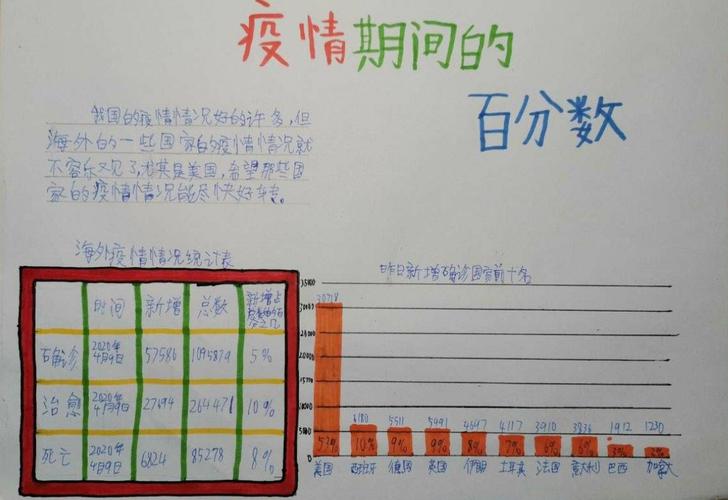 疫情期间的
百分数
我国的疫情情况好的许多,但
海外的一些国家的疫情情况就
不容乐观了,尤其是美国,希望那些国
家的疫情情况能尽快好转。
海外疫情情况统计表
时间 新增 总数 新增占
确诊 2020年4月9日 57586 1095879 5%
治愈 2020年4月9日 27494 264471 10%
死亡 2020年4月9日 6824 85278 8%
昨日新增确诊国家前十名
35000
30000
25000
20000
15000
10000
5000
0
30718 6180 5511 5491 4697 4117 3910 3836 1912 1230
53% 10% 9% 9% 8% 7% 6% 6% 3% 2%
美国 西班牙 德国 英国 伊朗 土耳其 法国 意大利 巴西 加拿大